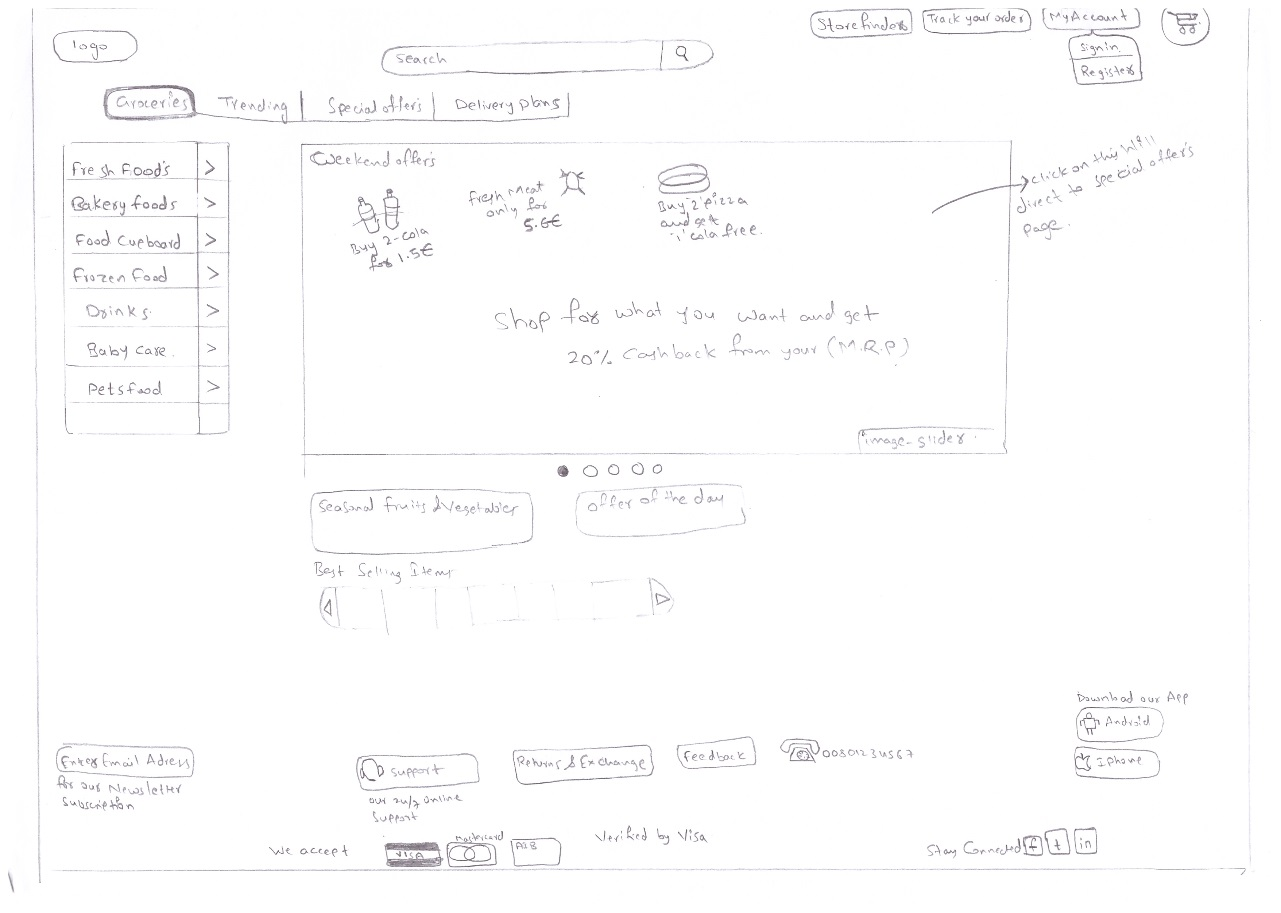 logo
Search
Store finders
Track your order
My Account
Signin
Register
Groceries
Trending
Special offers
Delivery plans
Fresh Foods
Bakery foods
Food Cupboard
Frozen Food
Drinks
Baby care
Petsfood
Weekend offers
Buy 2-cola
for 1.5€
Fresh Meat
only for
5.6€
Buy "2" pizza
and get
"1" cola free.
Shop for what you want and get
20% Cashback from your (M.R.P)
image-slider
click on this will
direct to special offer's
page.
Seasonal fruits & Vegetables
offer of the day
Best Selling Items
Download our App
Android
Iphone
Enter Email Adress
for our Newsletter
Subscription
Support
our 24/7 online
support
Returns & Exchange
Feedback
00801234567
We accept
VISA
Mastercard
Verified by Visa
Stay Connected
f
t
in